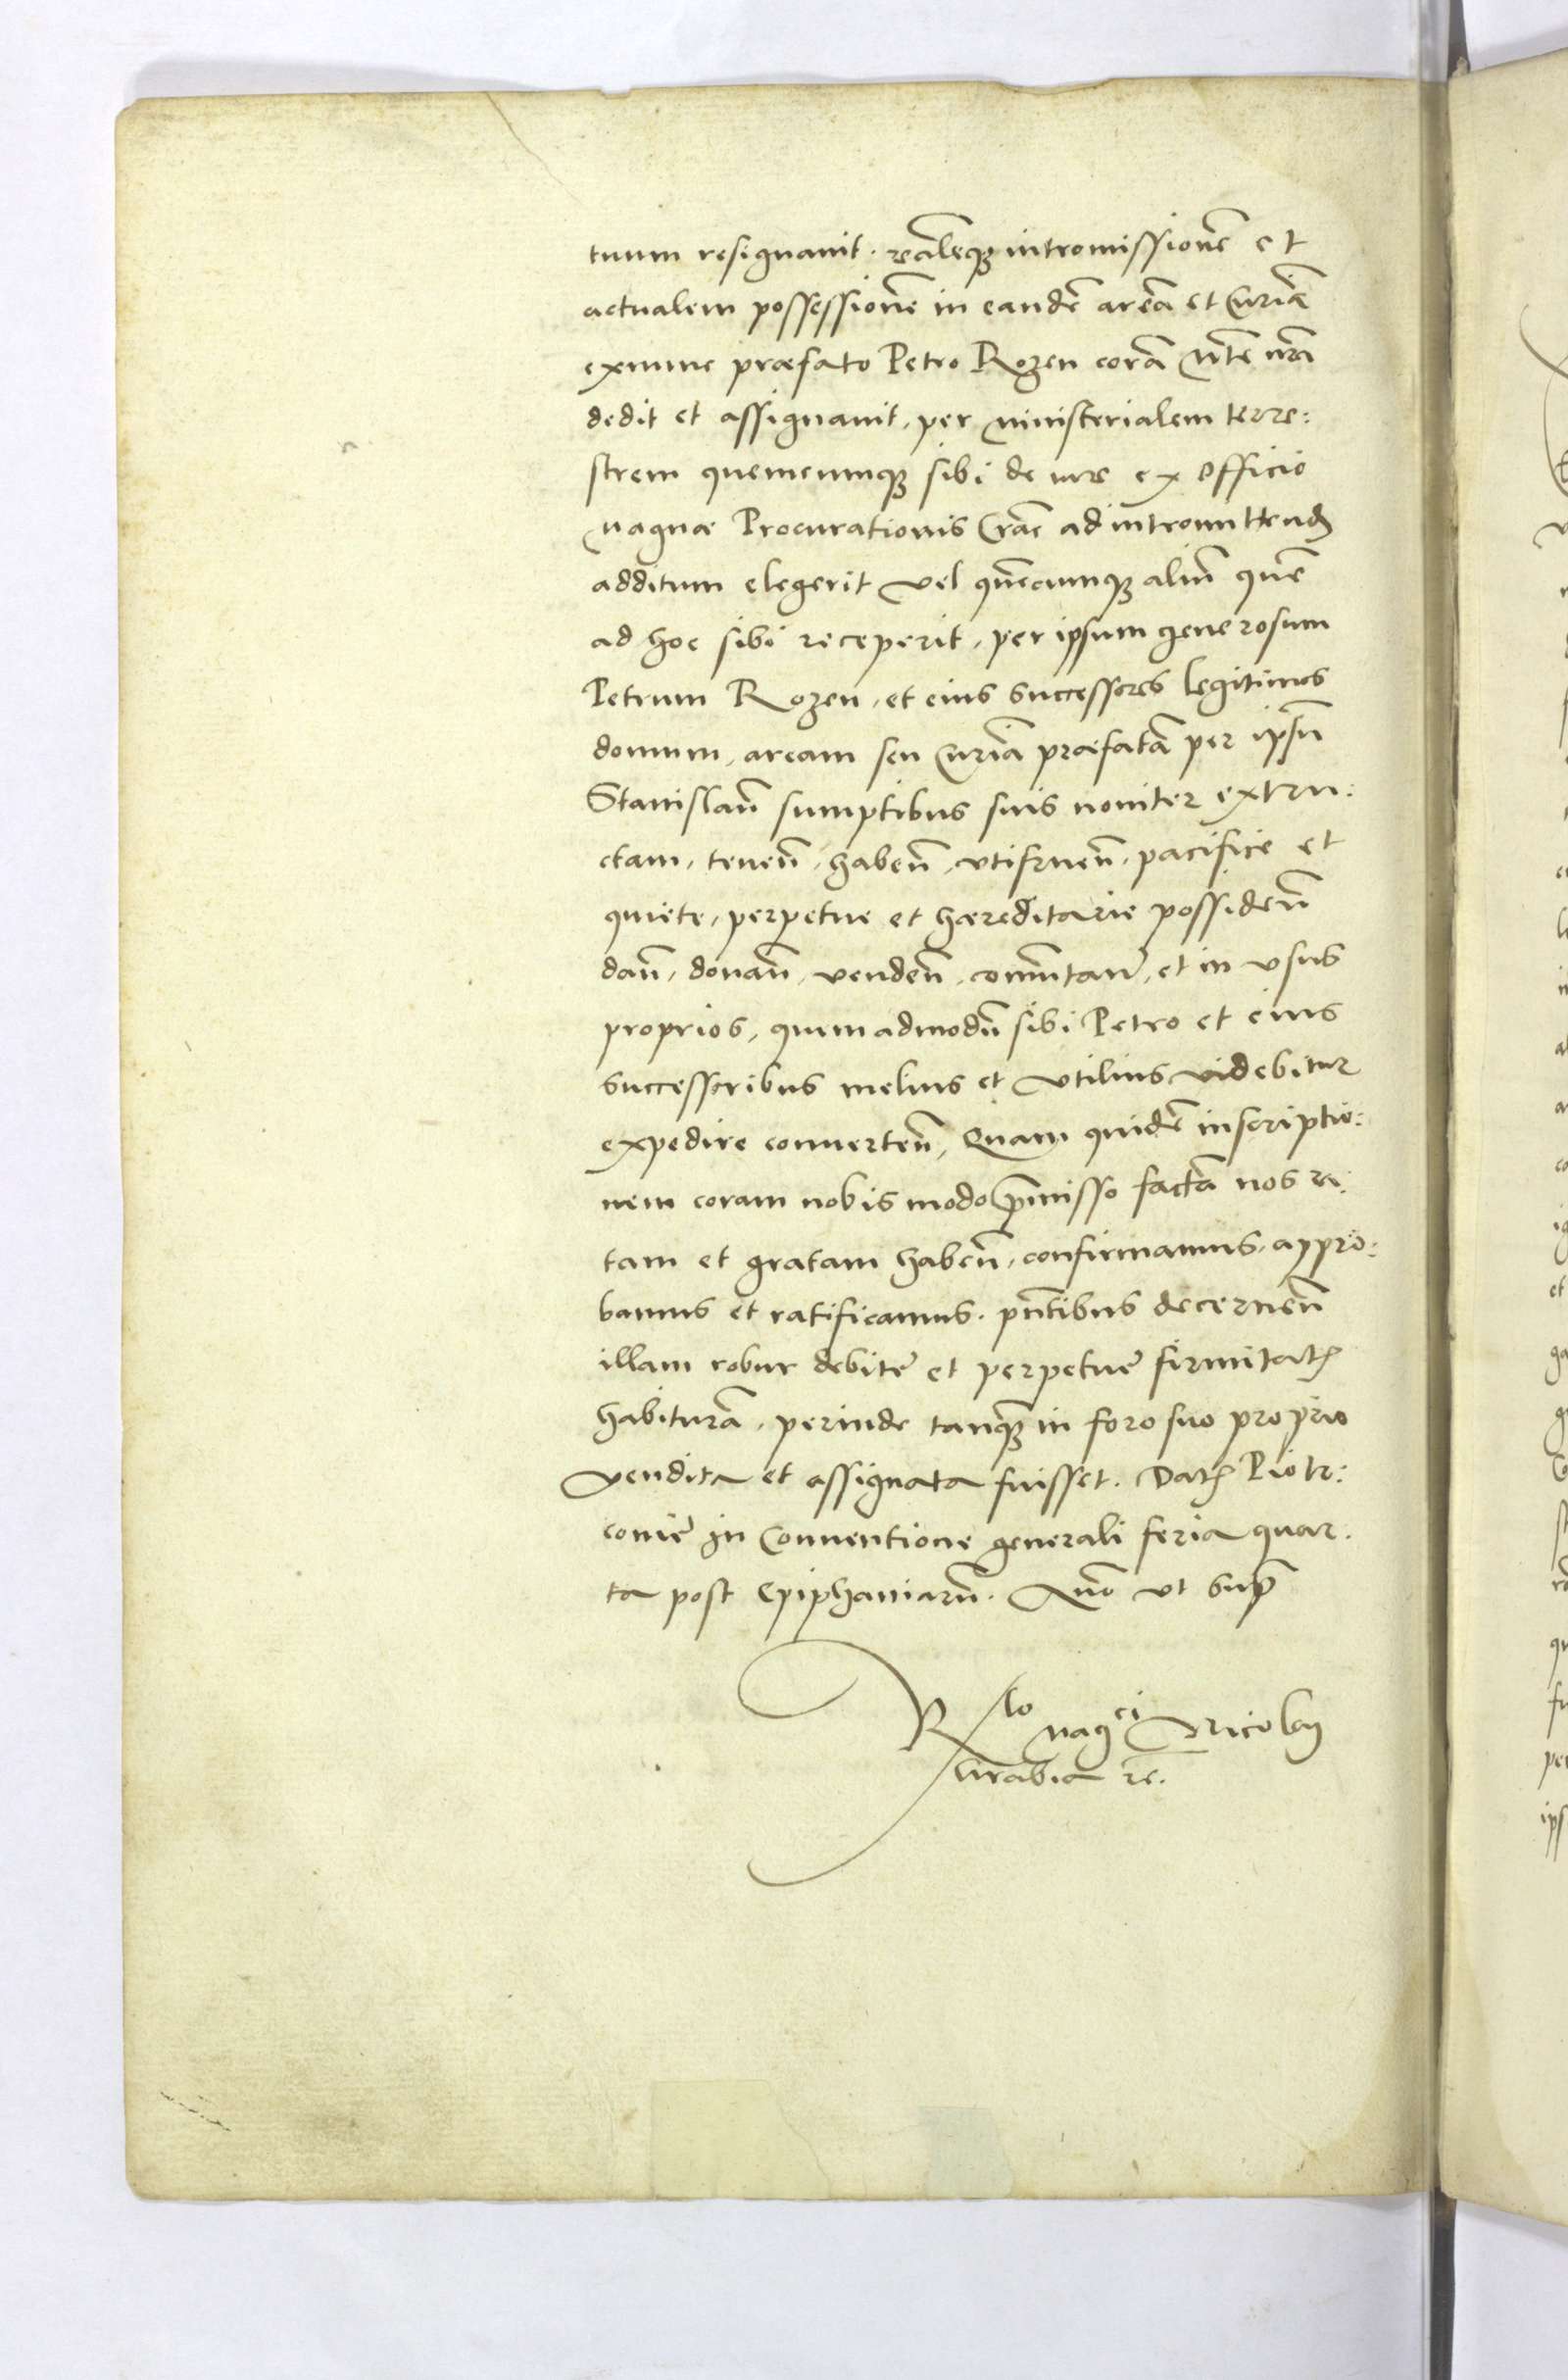 tuum resignavit. realeq₃ intromissionẽ et
actualem possessionẽ in eandẽ areã et Curiã
exnunc præfato Petro Rozen corã Mte nrã
dedit et assignavit, per ministerialem terre:
strem quemcunq₃ sibi de iure ex officio
magnæ Procurationis Crac ad intromittend
additum elegerit vel quẽcunq₃ aliũ quẽ
ad hoc sibi receperit, per ipsum generosum
Petrum Rozen, et eius successores legitimos
domum, aream seu Curiã præfatã per ipsũ
Stanislaũ sumptibus suis noviter extru:
ctam, tenen̄, haben̄, utifruen̄, pacifice et
quiete, perpetue et hæreditarie possiden̄
dan̄, donan̄, venden̄, commutan̄, et in usus
proprios, quemadmodũ sibi Petro et eius
successoribus melius et utilius videbitur
expedire converten̄, Quam quidẽ inscriptio:
nem coram nobis modo p̄misso factã nos ra:
tam et gratam haben̄, confirmamus, appro:
bamus et ratificamus. pñtibus decernen̄
illam robur debitę et perpetuę firmitatis
habiturã, perinde tanq₃ in foro suo proprio
vendita et assignata fuisset. Dat Piotr:
covię in Conventione generali feria quar:
ta post Epiphaniarũ. Anno ut supra
R̃lo mag^ci Nicolai
Grabia rc̃.